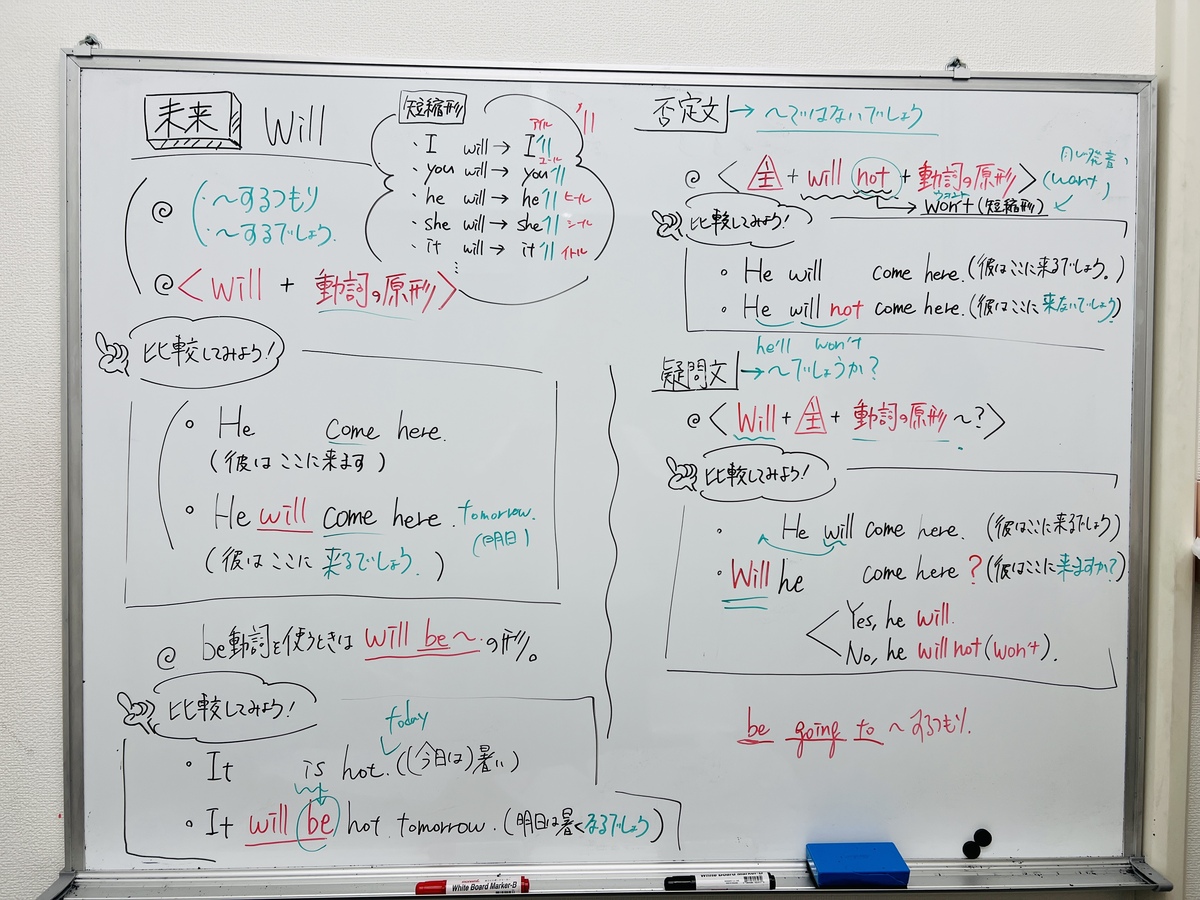 未来 Will
・〜するつもり
・〜するでしょう.
<will + 動詞の原形>
短縮形
'll
アイル
・I will → I'll
ユール
・you will → you'll
・he will → he'll ヒール
・she will → she'll シール
・it will → it'll イトル
⋮
比較してみよう!
。He come here.
(彼はここに来ます)
。He will come here. tomorrow.
(明日)
(彼はここに来るでしょう.)
be動詞を使うときは will be〜.の形。
比較してみよう!
today
。It is hot.((今日は)暑い)
。It will be hot tomorrow.(明日は暑くなるでしょう)
否定文 → 〜ではないでしょう
<主 + will not + 動詞の原形>
同じ発音、
(want)
ウォント
→ won't (短縮形)
比較してみよう!
。He will come here.(彼はここに来るでしょう。)
。He will not come here.(彼はここに来ないでしょう)
he'll won't
疑問文 → 〜でしょうか?
<Will + 主 + 動詞の原形 〜?>
比較してみよう!
・He will come here. (彼はここに来るでしょう)
・Will he come here ? (彼はここに来ますか?)
Yes, he will.
No, he will not (won't).
be going to 〜するつもり.
White Board Marker-B